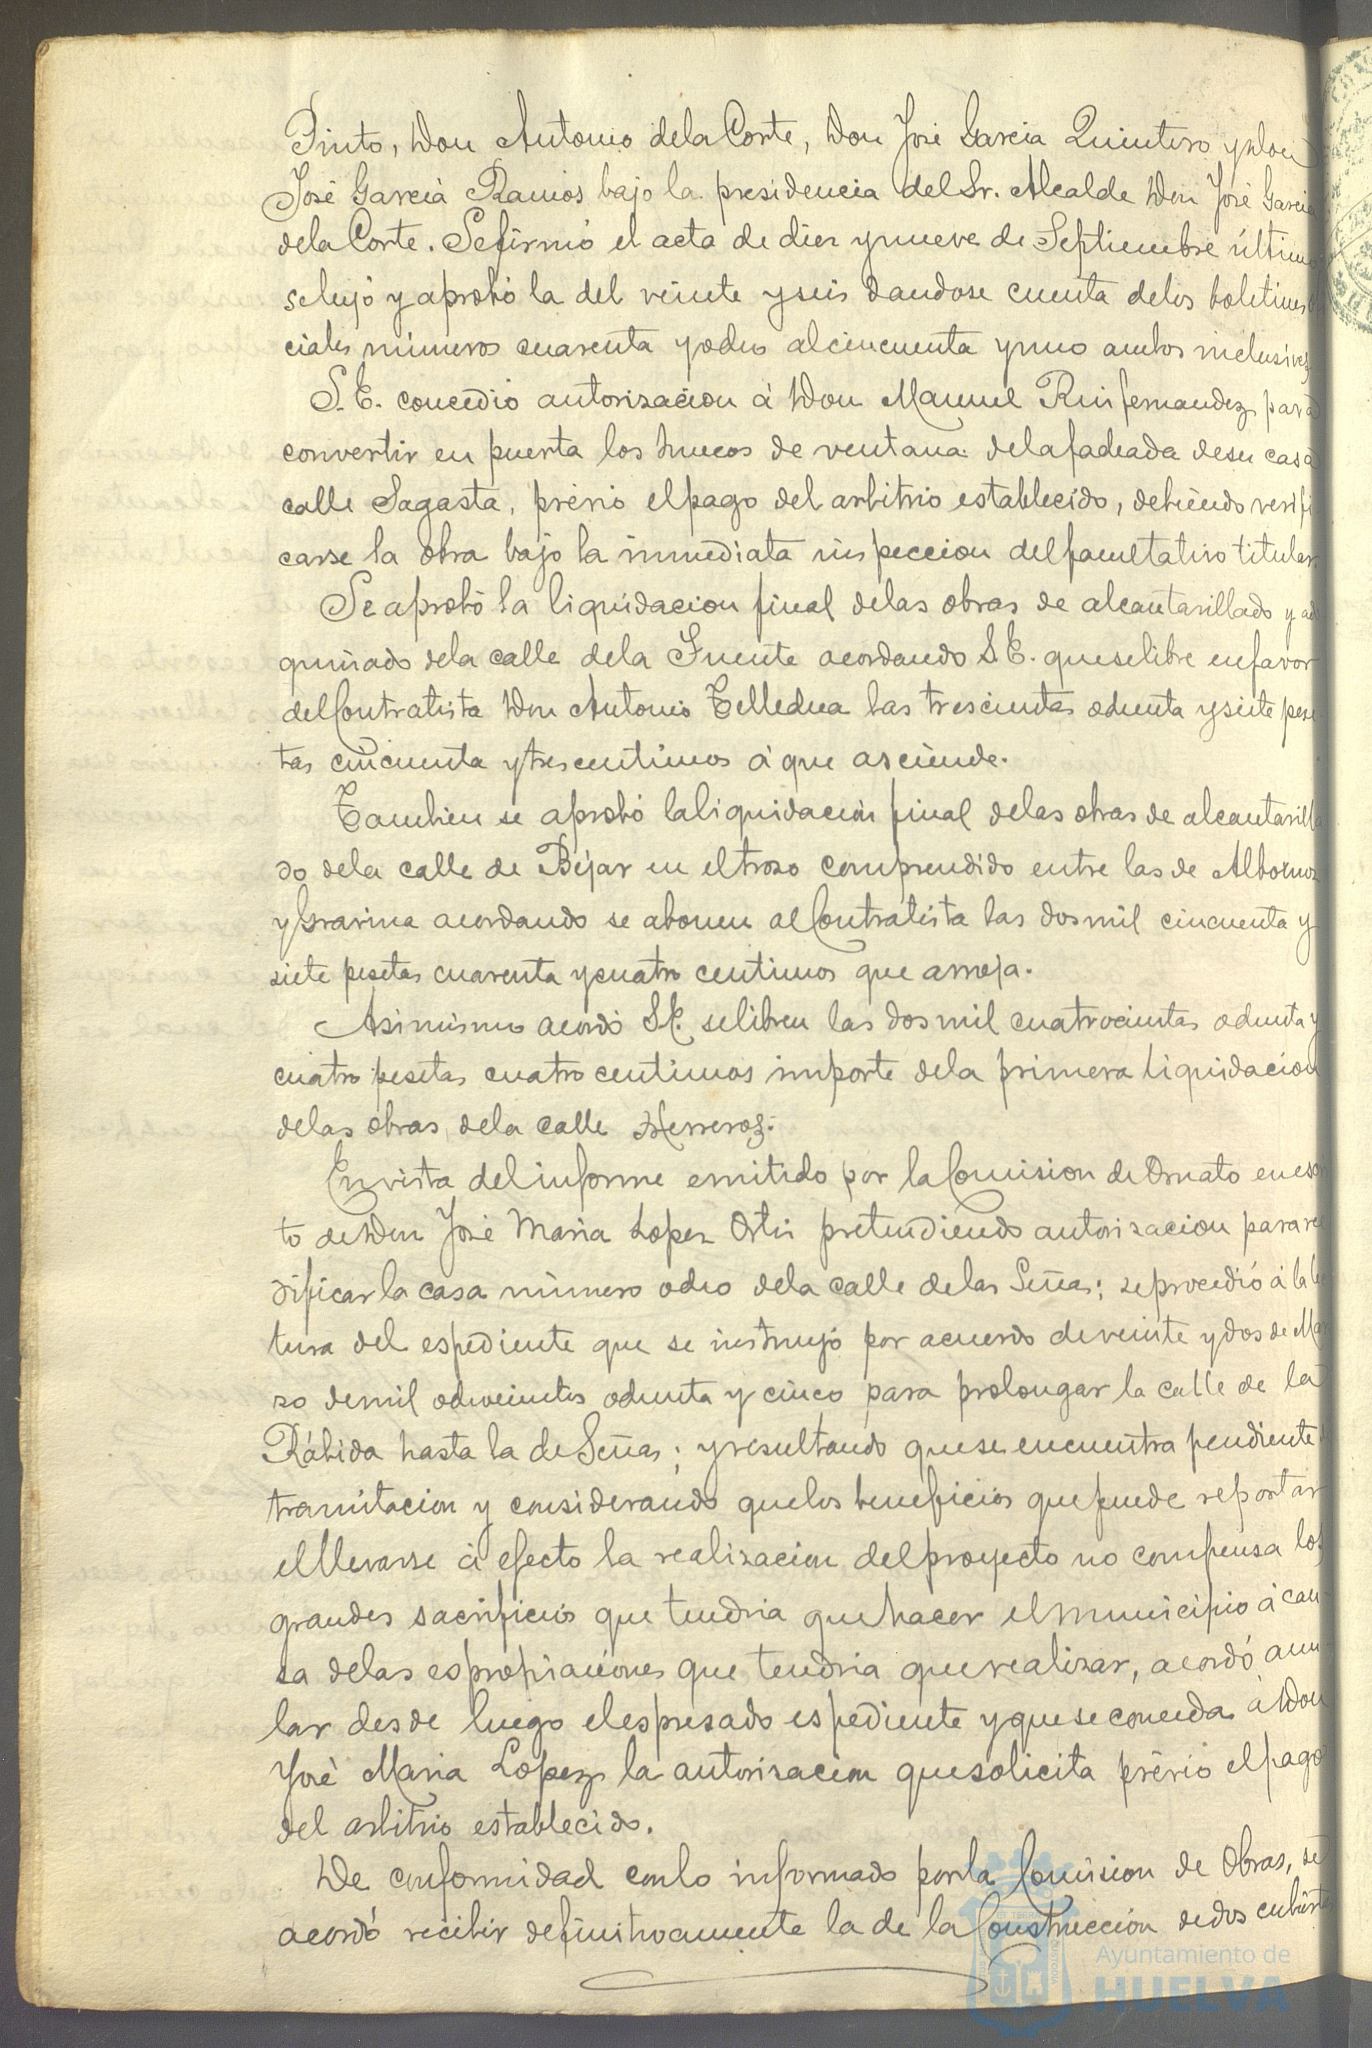 Pinto, Don Antonio de la Corte, Don José Garcia Quintero y Don
José Garcia Ramos bajo la presidencia del Sr. Alcalde Don José Garcia
de la Corte. Se firmó el acta de diez y nueve de Septiembre último
se leyó y aprobó la del veinte y seis dandose cuenta de los boletines ofi
ciales números cuarenta y ocho al cincuenta y uno ambos inclusives
S. E. concedió autorizacion á Don Manuel Ruifernandez para
convertir en puerta los huecos de ventana de la fachada de su casa
calle Sagasta, prévio el pago del arbitrio establecido, debiendo verifi
carse la obra bajo la inmediata inspeccion del facultativo titular.
Se aprobó la liquidacion final de las obras de alcantarillado y ado
quinado de la calle de la Fuente acordando S. E. que se libre en favor
del Contratista Don Antonio Tellechea las trescientas ochenta y siete pese
tas cincuenta y tres centimos á que asciende.
Tambien se aprobó la liquidacion final de las obras de alcantarilla
do de la calle de Béjar en el trozo comprendido entre las de Albornoz
y Gravina acordando se abonen al Contratista las dos mil cincuenta y
siete pesetas cuarenta y cuatro centimos que arroja.
Asimismo acordó S. E. se libren las dos mil cuatrocientas ochenta y
cuatro pesetas cuatro centimos importe de la primera liquidacion
de las obras de la calle Herreros.
En vista del informe emitido por la Comision de Ornato en escri
to de Don José Maria Lopez Ortiz pretendiendo autorizacion para ree
dificar la casa número ocho de la calle de las Señas; se procedió á la lec
tura del espediente que se instruyó por acuerdo de veinte y dos de Mar
zo de mil ochocientos ochenta y cinco para prolongar la calle de la
Rábida hasta la de Señas; y resultando que se encuentra pendiente
tramitacion y considerando que los beneficios que puede reportar
el llevarse á efecto la realizacion del proyecto no compensa los
grandes sacrificios que tendria que hacer el municipio á cau
sa de las espropiaciones que tendria que realizar, acordó anu
lar desde luego el espresado espediente y que se conceda á Don
José Maria Lopez la autorizacion que solicita prévio el pago
del arbitrio establecido.
De conformidad con lo informado por la Comision de Obras, se
acordó recibir definitivamente la de la Construccion de dos cubiertas
Ayuntamiento de
HUELVA